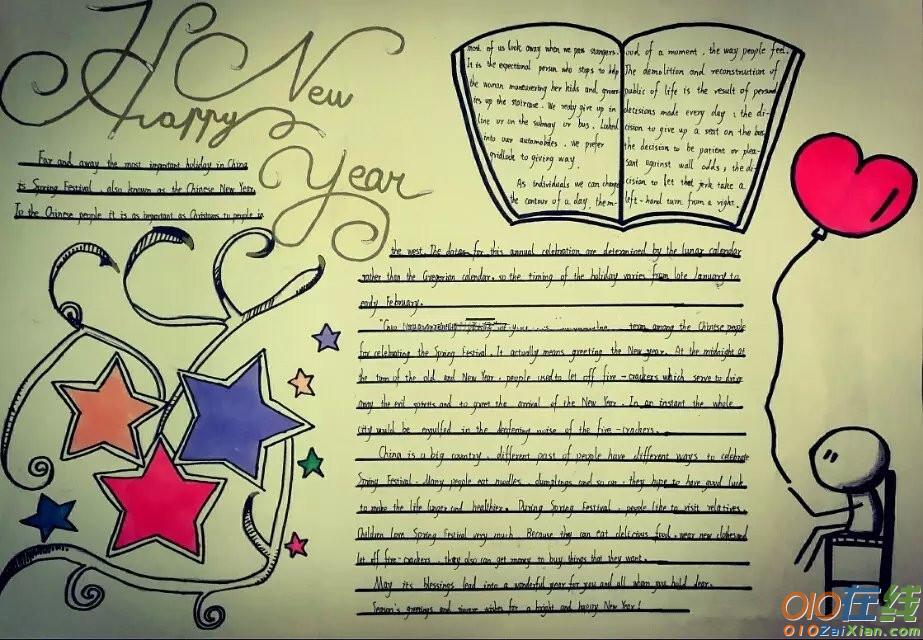 Happy New
Year
Far and away the most important holiday in China
is Spring Festival, also known as the Chinese New Year.
To the Chinese people it is as important as Christmas to people in
the west. The dates for this annual celebration are determined by the lunar calendar
rather than the Gregorian calendar, so the timing of the holiday varies from late January to
early February.
term among the Chinese people
for celebrating the Spring Festival. It actually means greeting the New year. At the midnight at
the turn of the old and New Year, people used to let off fire-crackers which serve to drive
away the evil spirits and to greet the arrival of the New Year. In an instant the whole
city would be engulfed in the deafening noise of the fire-crackers.
China is a big country, different past of people have different ways to celebrate
Spring Festival. Many people eat noodles, dumplings and so on, they hope to have good luck
to make the life longer and healthier. During Spring Festival, people like to visit relatives.
Children love Spring Festival very much. Because they can eat delicious food, wear new clothes and
let off fire-crackers, they also can get money to buy things that they want.
May its blessings lead into a wonderful year for you and all whom you hold dear.
Season's greetings and sincere wishes for a bright and happy New Year!
most of us look away when we pass strangers.
It is the exceptional person who stops to help
the woman maneuvering her kids and
up the staircase. We rarely give up in
line or on the subway or bus. Locked
into our automobiles, we prefer
gridlock to giving way.
As individuals we can change
the contour of a day, the m-
ood of a moment, the way people feel.
The demolition and reconstruction of
public of life is the result of personal
decisions made every day: the de-
cision to give up a seat on the bus,
the decision to be patient or plea-
sant against wall odds; the de-
cision to let that jerk take a
left-hand turn from a right.
010在线
010ZaiXian.com